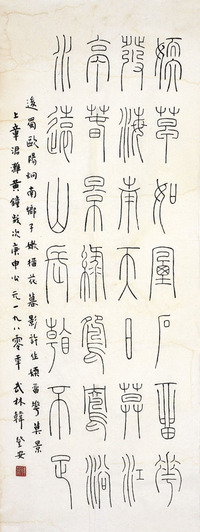 媆草如煙石畱華
發海南天日莫江
亭春景淥鴛鴦浴
水遠山長看不足
後蜀歐陽炯南鄉子嫩榴花暮影許作媆畱華莫景
上章涒灘黃鐘歲次庚申公元一九八零年武林韓登安